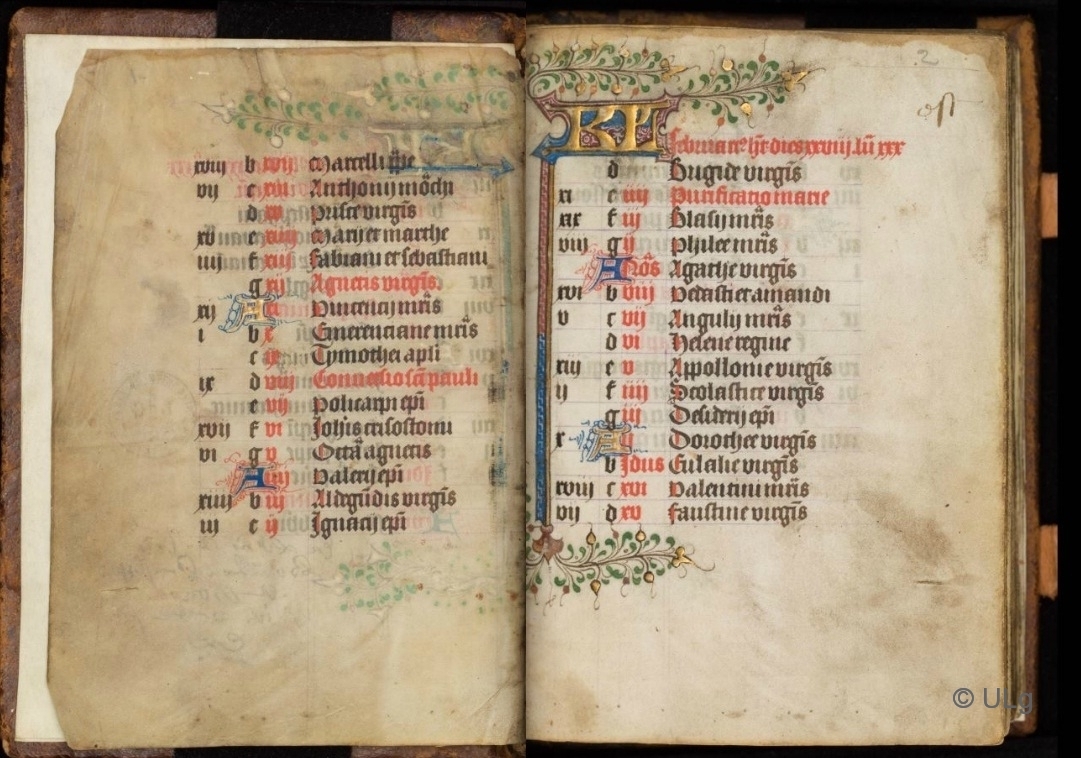 xviij b xvij Marcelli pape
vij c xvi Anthonij mõchi
d xv Prisce virgīs
xv e xiiij Marij et marthe
iiij f xiij Fabiani et sebastiani
g xij Agnetis virgīs
xij A xi Vincencij mr̄is
i b x Emerenciane mr̄is
c ix Tymothei apli
ix d viij Conuersio sc̄i pauli
e vij Policarpi ep̄i
xvij f vi Joh̄is crisostomi
vi g v Octā agnetis
A iiij Valerij ep̄i
xiiij b iij Aldegūdis virgīs
iij c ij Ignacij ep̄i
2
KL Februari9 hƷ dies xxviij lū xxx
d Brigide virgīs
xi e iiij Purificatio marie
xix f iij Blasij mr̄is
viij g ij Philee mr̄is
A Nōs Agathe virgīs
xvi b viij Vedasti et amandi
v c vij Angulij mr̄is
d vi Helene regine
xiij e v Appollonie virgīs
ij f iiij Scolastice virgīs
g iij Desiderij ep̄i
x A ij Dorothee virgīs
b Idus Eulalie virgīs
xviij c xvi Valentini mr̄is
vij d xv Faustine virgīs
© ULg